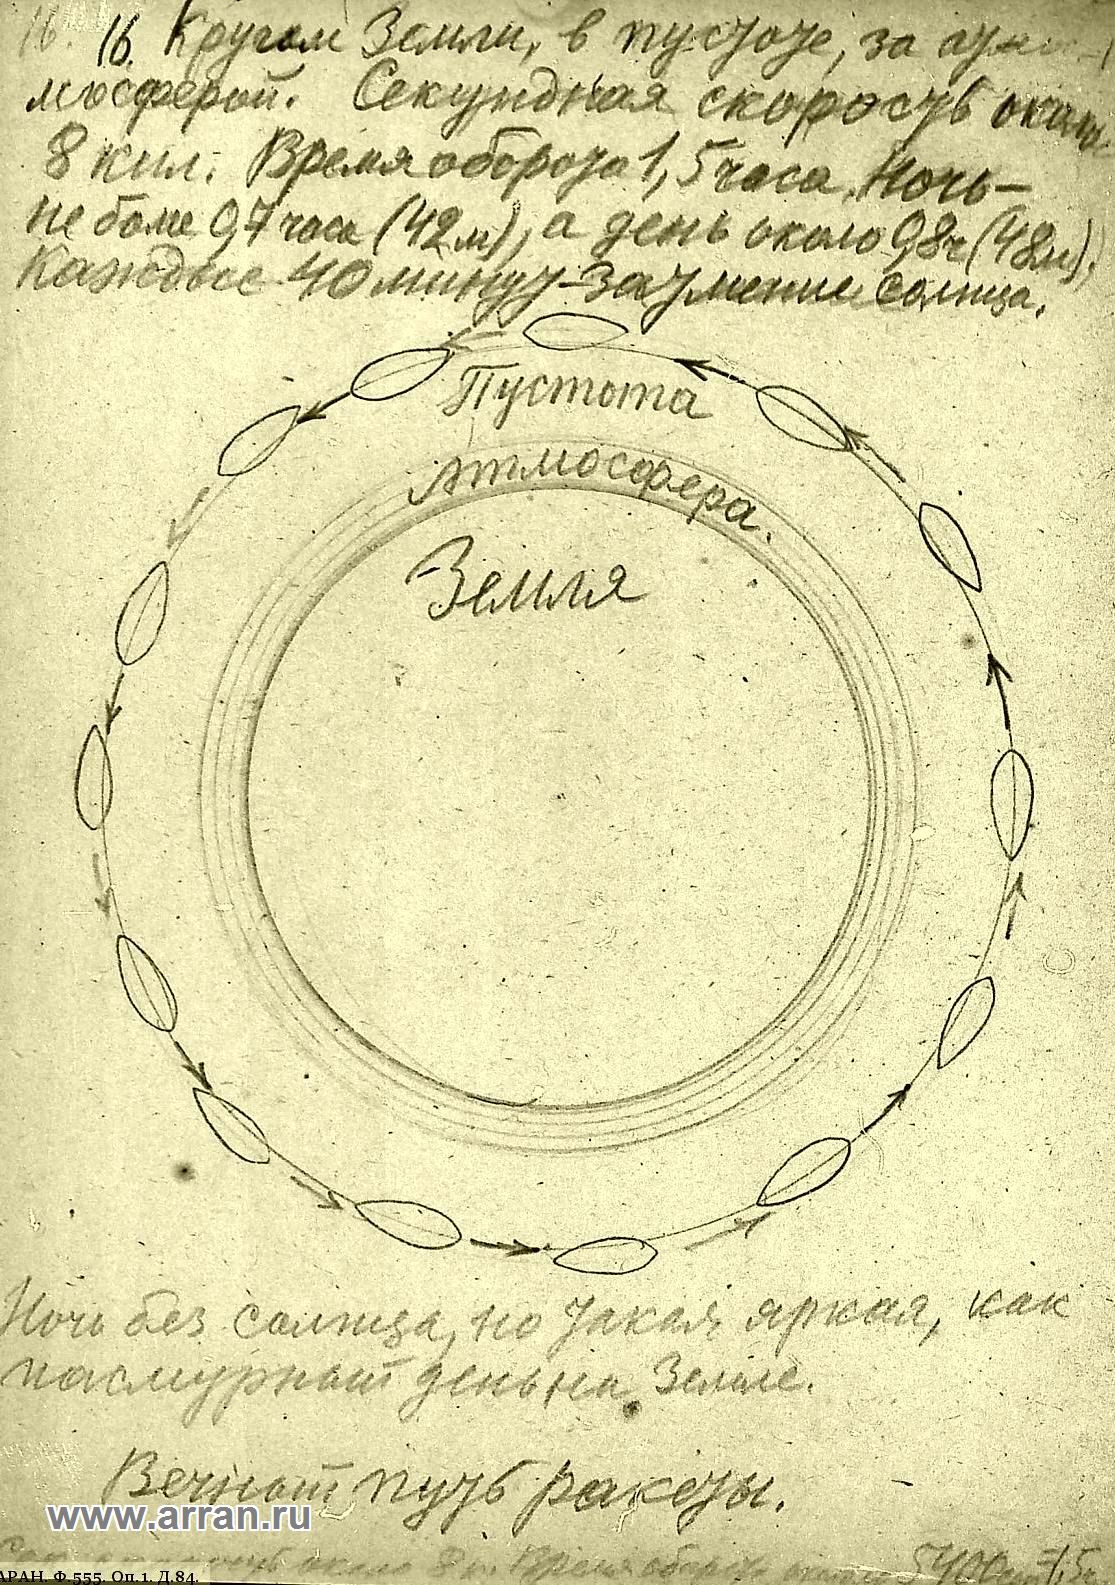 16. 16. Кругом Земли, в пустоте, за ат-
мосферой. Секундная скорость около
8 кил. Время оборота 1,5 часа. Ночь –
не более 0,7 часа (42 м), а день около 0,8 ч (48 м).
Каждые 40 минут – затмение солнца.
Пустота
Атмосфера.
Земля
Ночь без солнца, но такая яркая, как
пасмурный день на Земле.
Вечный путь ракеты.
www.arran.ru
скорость около Время
АРАН. Ф.555. Оп.1. Д.84.